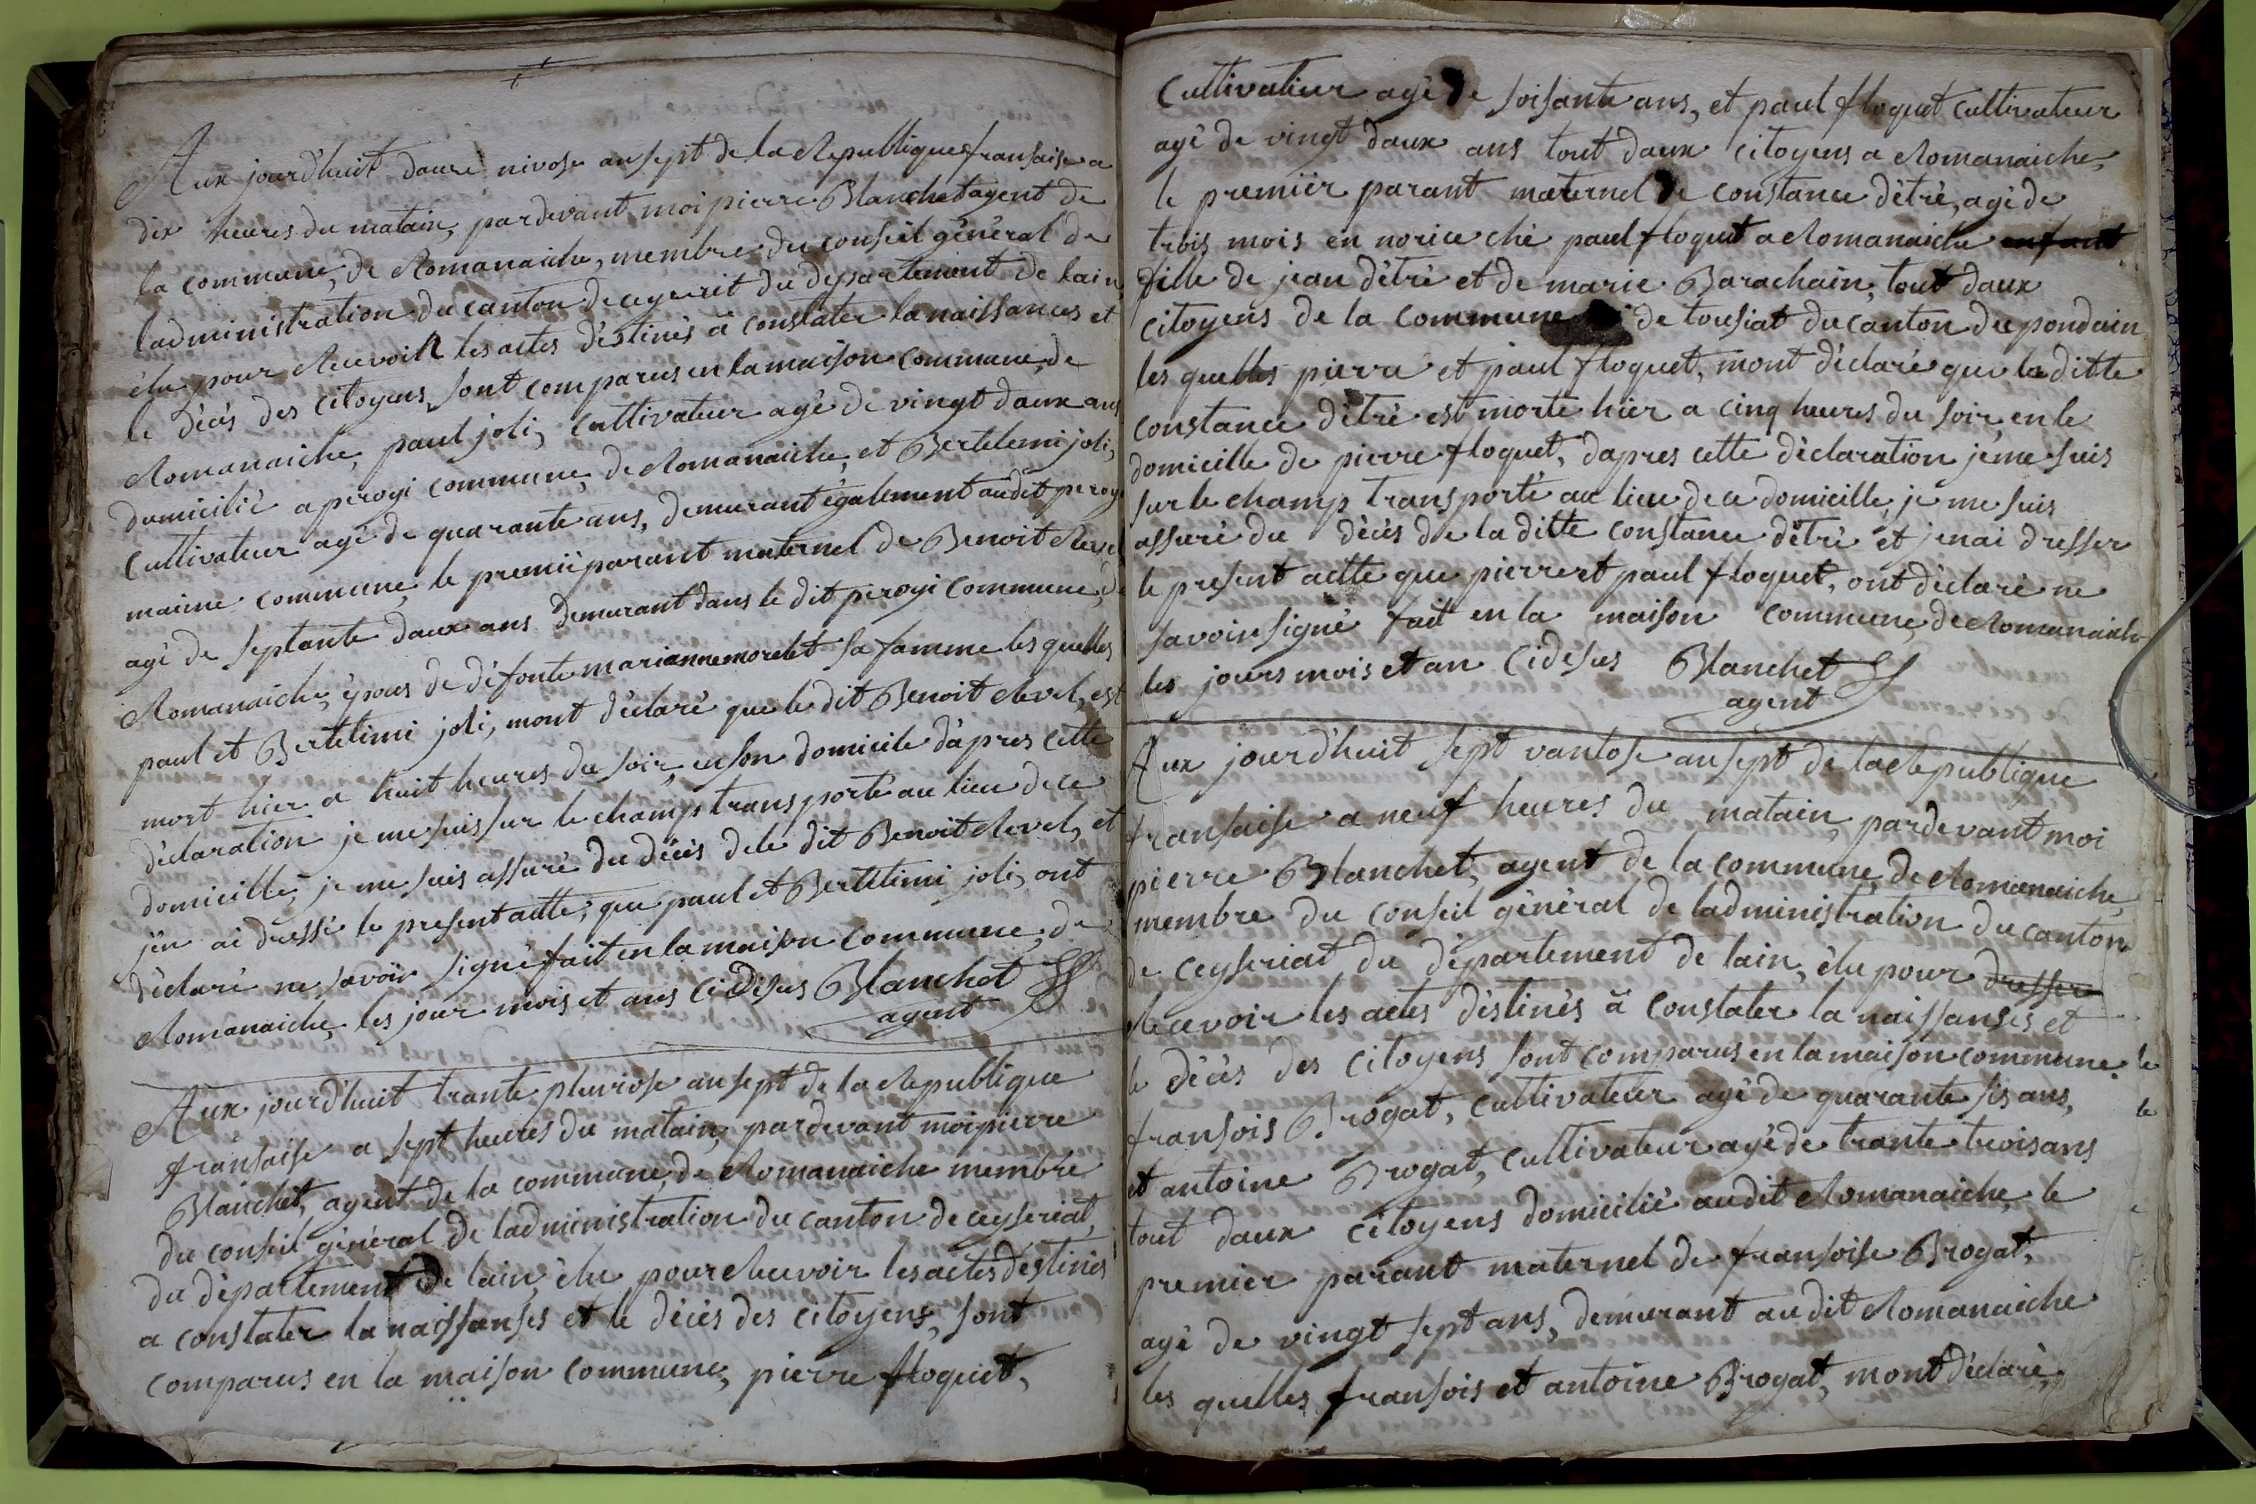 Aux jourd'huit douze nivose an sept de la Republique fransaise a
dix heures du matain, pardevant moi pierre Blanchet agent de
la commune, de Romanaiche, membre du conseil général de
l'administration du canton de ceyserit du département de l'ain
élu pour Recevoir les actes déstinés à constater la naissances et
le décés des citoyens, sont comparus en la maison commune, de
Romanaiche, paul joli, cultivateur agé de vingt daux ans
domicilié a peroyi commune, de Romanaiche, et Bertelemi joli,
cultivateur agé de quarante ans, demurant également audit peroyi
maime commune, le premii parant maternel de Benoit Revel
agé de septante daux ans demurant dans le dit peroyi commune, de
Romanaiche, époux de défonte marianne morelet sa famme les quelles
paul et Bertelimi joli, mont déclaré que le dit Benoit Revel, est
mort hier a huit heures du soir, en son domicile d'apres cette
déclaration je me suis sur le champ transporté au lieu de ce
domicille, je me suis assuré du décés de le dit Benoit Revel, et
j'en ai dressé le present actte, que paul et Bertelimi joli, ont
déclaré ne savoir signé fait en la maison commune, de
Romanaiche, les jour mois et ans ci desus Blanchet
agent
Aux jourd'huit trante pluviose an sept de la Republique
fransaise a sept heures du matain, pardevant moi pierre
Blanchet, agent de la commune, de Romanaiche membre
du conseil général de l'administration du canton de ceyseriat,
du département de l'ain, élu pour Recevoir les actes destinés
a constater la naissanses et le décés des citoyens, sont
comparus en la maison commune, pierre floquet,
Cultivateur agé de soisante ans, et paul floquet cultivateur
agé de vingt daux ans tout daux citoyens a Romanaiche,
le premiér parant maternel de constance détré, agé de
trois mois en norice ché paul floquet a Romanaiche enfant
fille de jean détré et de marie Barachain, tout daux
citoyens de la commune de tousiat du canton du pondain
les quelles pierre et paul floquet, mont déclaré que la ditte
constance détré est morte hier a cinq heures du soir, en le
domicille de pierre floquet, d'apres cette déclaration je me suis
sur le champ transporté au lieu de ce domicille, je me suis
assuré du décés de la ditte constance détré et jenai dresser
le present actte que pierre et paul floquet, ont déclaré ne
savoir signé fait en la maison commune, de Romanaiche
les jours mois et an ci desus Blanchet
agent
Aux jourd'huit sept vantose an sept de la Republique
fransaise a neuf heures du matain, pardevant moi
pierre Blanchet, agent de la commune, de Romanaiche,
membre du conseil général de l'administration du canton
de ceyseriat du département de l'ain, élu pour dresser
Recevoir les actes déstinés à constater la naissanses et
le décés des citoyens sont comparus en la maison commune. le
fransois Brogat, cultivateur agé de quarante sis ans, le
et antoine Brogat, cultivateur agé de trante trois ans
tout daux citoyens domicilié audit Romanaiche, le
premier parant maternel de fransoise Brogat,
agé de vingt sept ans, demurant audit Romanaiche
les quelles fransois et antoine Brogat, mont déclaré,